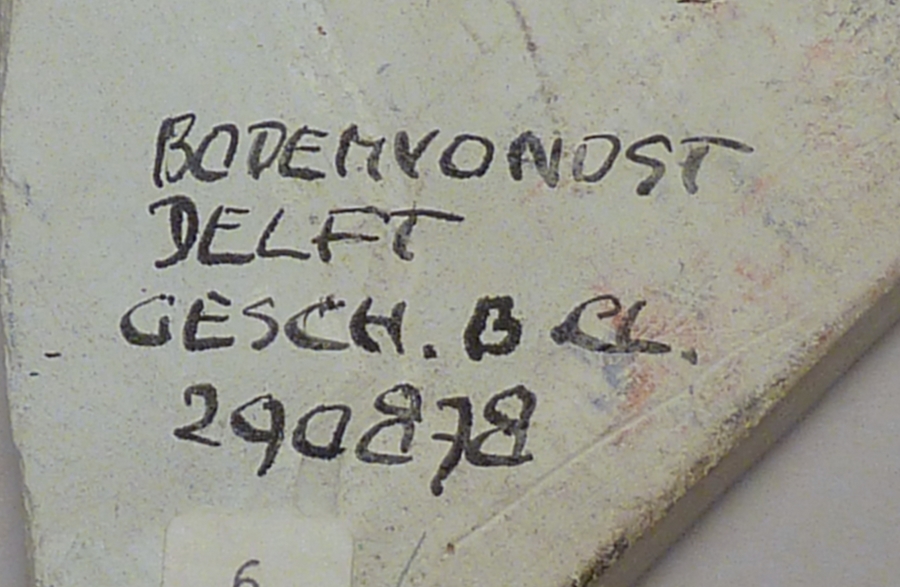 BODEMVONDST
DELFT
GESCH. B CL.
290878
6